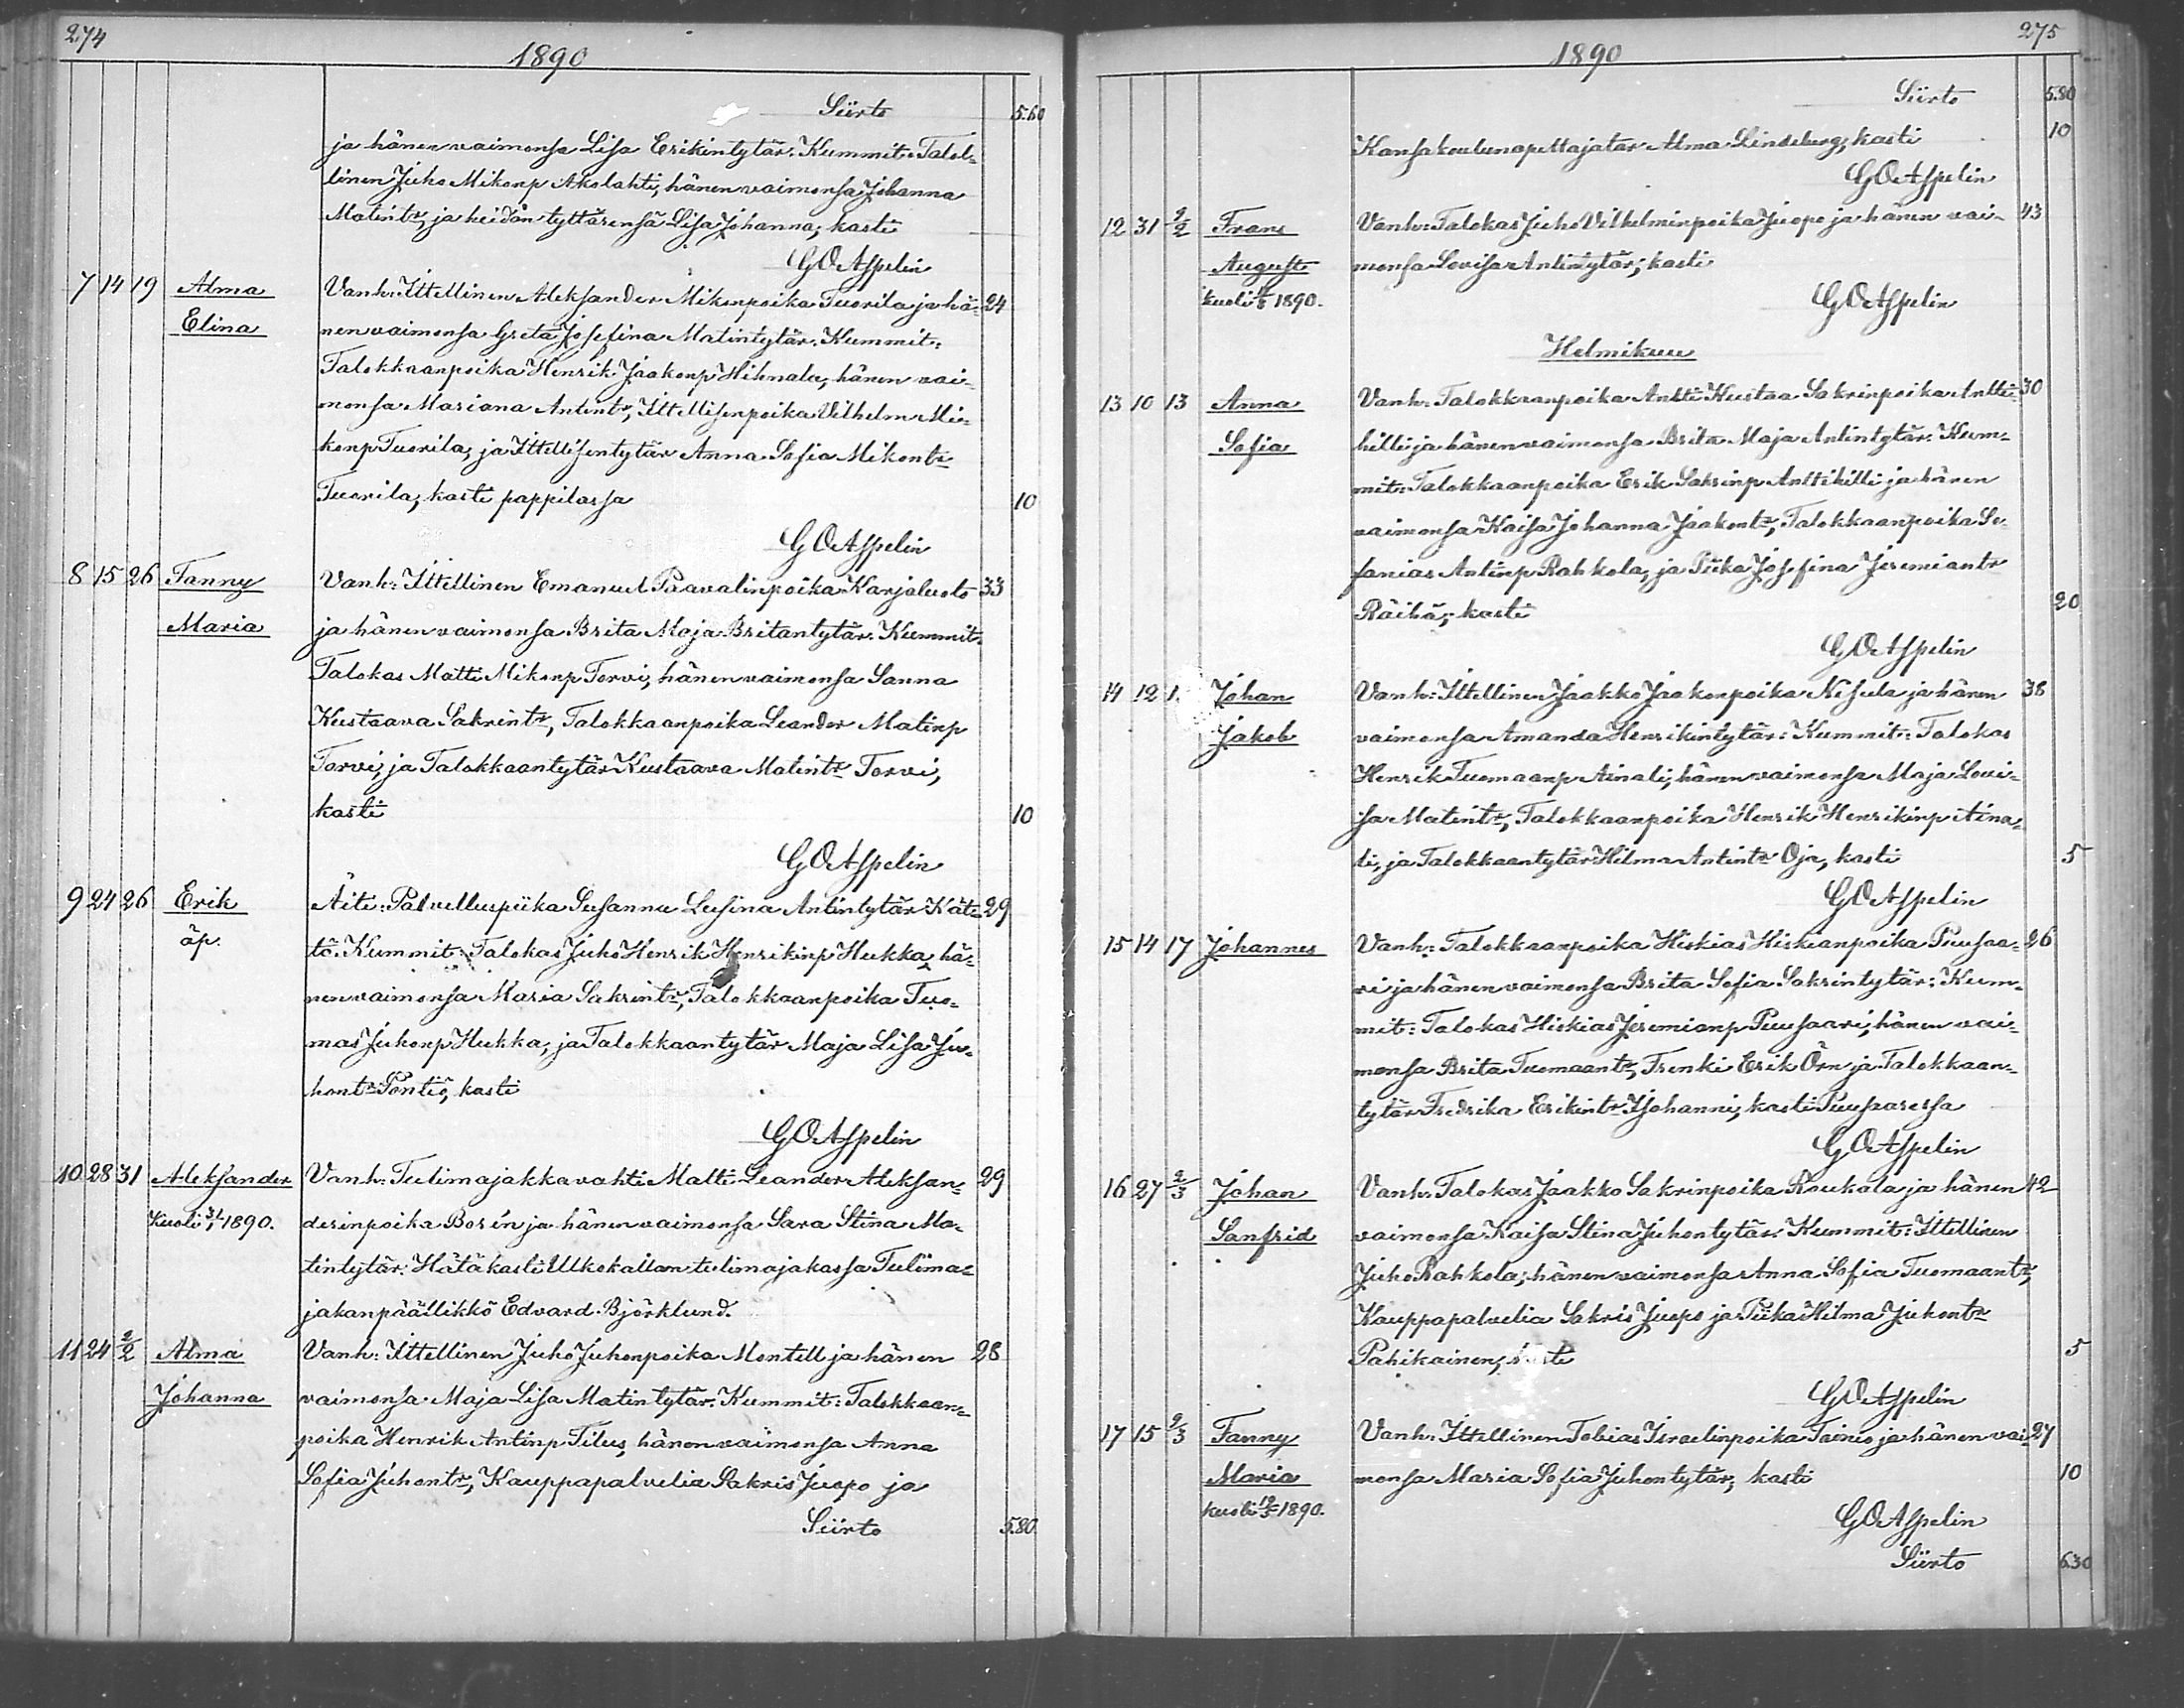 274
1890
Siirto 5.60
ja hänen vaimonsa Lisa Erikintytär. Kummit: Talol-
linen Juho Mikonp Akolahti, hänen vaimonsa Johanna
Matintr, ja heidän tyttärensä Lisa Johanna; kasti
GOAspelin
7 14 19 Alma Vanh: Ittellinen Aleksander Mikonpoika Tuorila ja hä- 24
Elina nen vaimonsa Greta Josefina Matintytär. Kummit:
Talokkaanpoika Henrik Jaakonp Hihnala, hänen vai-
monsa Mariana Antintr, Ittellisenpoika Vilhelm Mi-
konp Tuorila, ja Ittellisentytär Anna Sofia Mikontr
Tuorila, kasti pappilassa 10
GOAspelin
8 15 26 Fanny Vanh: Ittellinen Emanuel Paavalinpoika Karjaluoto 33
Maria ja hänen vaimonsa Brita Maja Britantytär. Kummit:
Talokas Matti Mikonp Torvi, hänen vaimonsa Sanna
Kustaava Sakrintr, Talokkaanpoika Leander Matinp
Torvi, ja Talokkaantytär Kustaava Matintr Torvi,
kasti 10
GOAspelin
9 24 26 Erik Äiti: Palvelluspiika Susanna Lusina Antintytär Kät- 29
äp. tö. Kummit: Talokas Juho Henrik Henrikinp Hukka, hä-
nen vaimonsa Maria Sakrintr, Talokkaanpoika Tuo-
mas Juhonp Hukka, ja Talokkaantytär Maja Lisa Ju-
hontr Pöntiö, kasti
GOAspelin
10 28 31 Aleksander Vanh: Tulimajakkavahti Matti Leander Aleksan- 29
Kuoli 31/1 1890. derinpoika Borén ja hänen vaimonsa Sara Stina Ma-
tintytär. Hätäkasti Ulkokallan tulimajakassa Tulima-
jakanpäällikkö Edvard Björklund.
11 24 2/2 Alma Vanh: Ittellinen Juho Juhonpoika Montell ja hänen 28
Johanna vaimonsa Maja Lisa Matintytär. Kummit: Talokkaan-
poika Henrik Antinp Tilus, hänen vaimonsa Anna
Sofia Juhontr, Kauppapalvelia Sakris Juopo ja
Siirto 5.80
275
1890
Siirto 5.80
Kansakoulunopettajatar Alma Lindeberg, kasti 10
GOAspelin
12 31 2/2 Frans Vanh: Talokas Juho Vilhelminpoika Juopo ja hänen vai- 43
August monsa Lovisa Antintytär; kasti
kuoli 1890. GOAspelin
Helmikuu
13 10 13 Anna Vanh: Talokkaanpoika Antti Kustaa Sakrinpoika Antti- 30
Sofia hilli ja hänen vaimonsa Brita Maja Antintytär. Kum-
mit: Talokkaanpoika Erik Sakrinp Anttihilli ja hänen
vaimonsa Kaisa Johanna Jaakontr, Talokkaanpoika Se-
fanias Antinp Rahkola, ja Piika Josefina Jeremiantr
Räihä; kasti 20
GOAspelin
14 12 1 Johan Vanh: Ittellinen Jaakko Jaakonpoika Nisula ja hänen 38
Jakob vaimonsa Amanda Henrikintytär. Kummit: Talokas
Henrik Tuomaanp Ainali, hänen vaimonsa Maja Lovi-
sa Matintr, Talokkaanpoika Henrik Henrikinp Aina-
li, ja Talokkaantytär Hilma Antintr Oja, kasti 5
GOAspelin
15 14 17 Johannes Vanh: Talokkaanpoika Hiskias Hiskianpoika Puusaa- 26
ri ja hänen vaimonsa Brita Sofia Sakrintytär. Kum-
mit: Talokas Hiskias Jeremianp Puusaari, hänen vai-
monsa Brita Tuomaantr, Trenki Erik Örn ja Talokkaan-
tytär Fredrika Erikintr Isohanni, kasti Puusaaressa
GOAspelin
16 27 2/3 Johan Vanh: Talokas Jaakko Sakrinpoika Roukala ja hänen 42
Sanfrid vaimonsa Kaisa Stina Juhontytär. Kummit: Ittellinen
Juho Rahkola, hänen vaimonsa Anna Sofia Tuomaantr,
Kauppapalvelia Sakris Juopo ja Piika Hilma Juhontr
Pahikainen, kasti 5
GOAspelin
17 15 9/3 Fanny Vanh: Ittellinen Tobias Israelinpoika Tainio ja hänen vai- 27
Maria monsa Maria Sofia Juhontytär, kasti 10
kuoli 1890. GOAspelin
Siirto 6.30